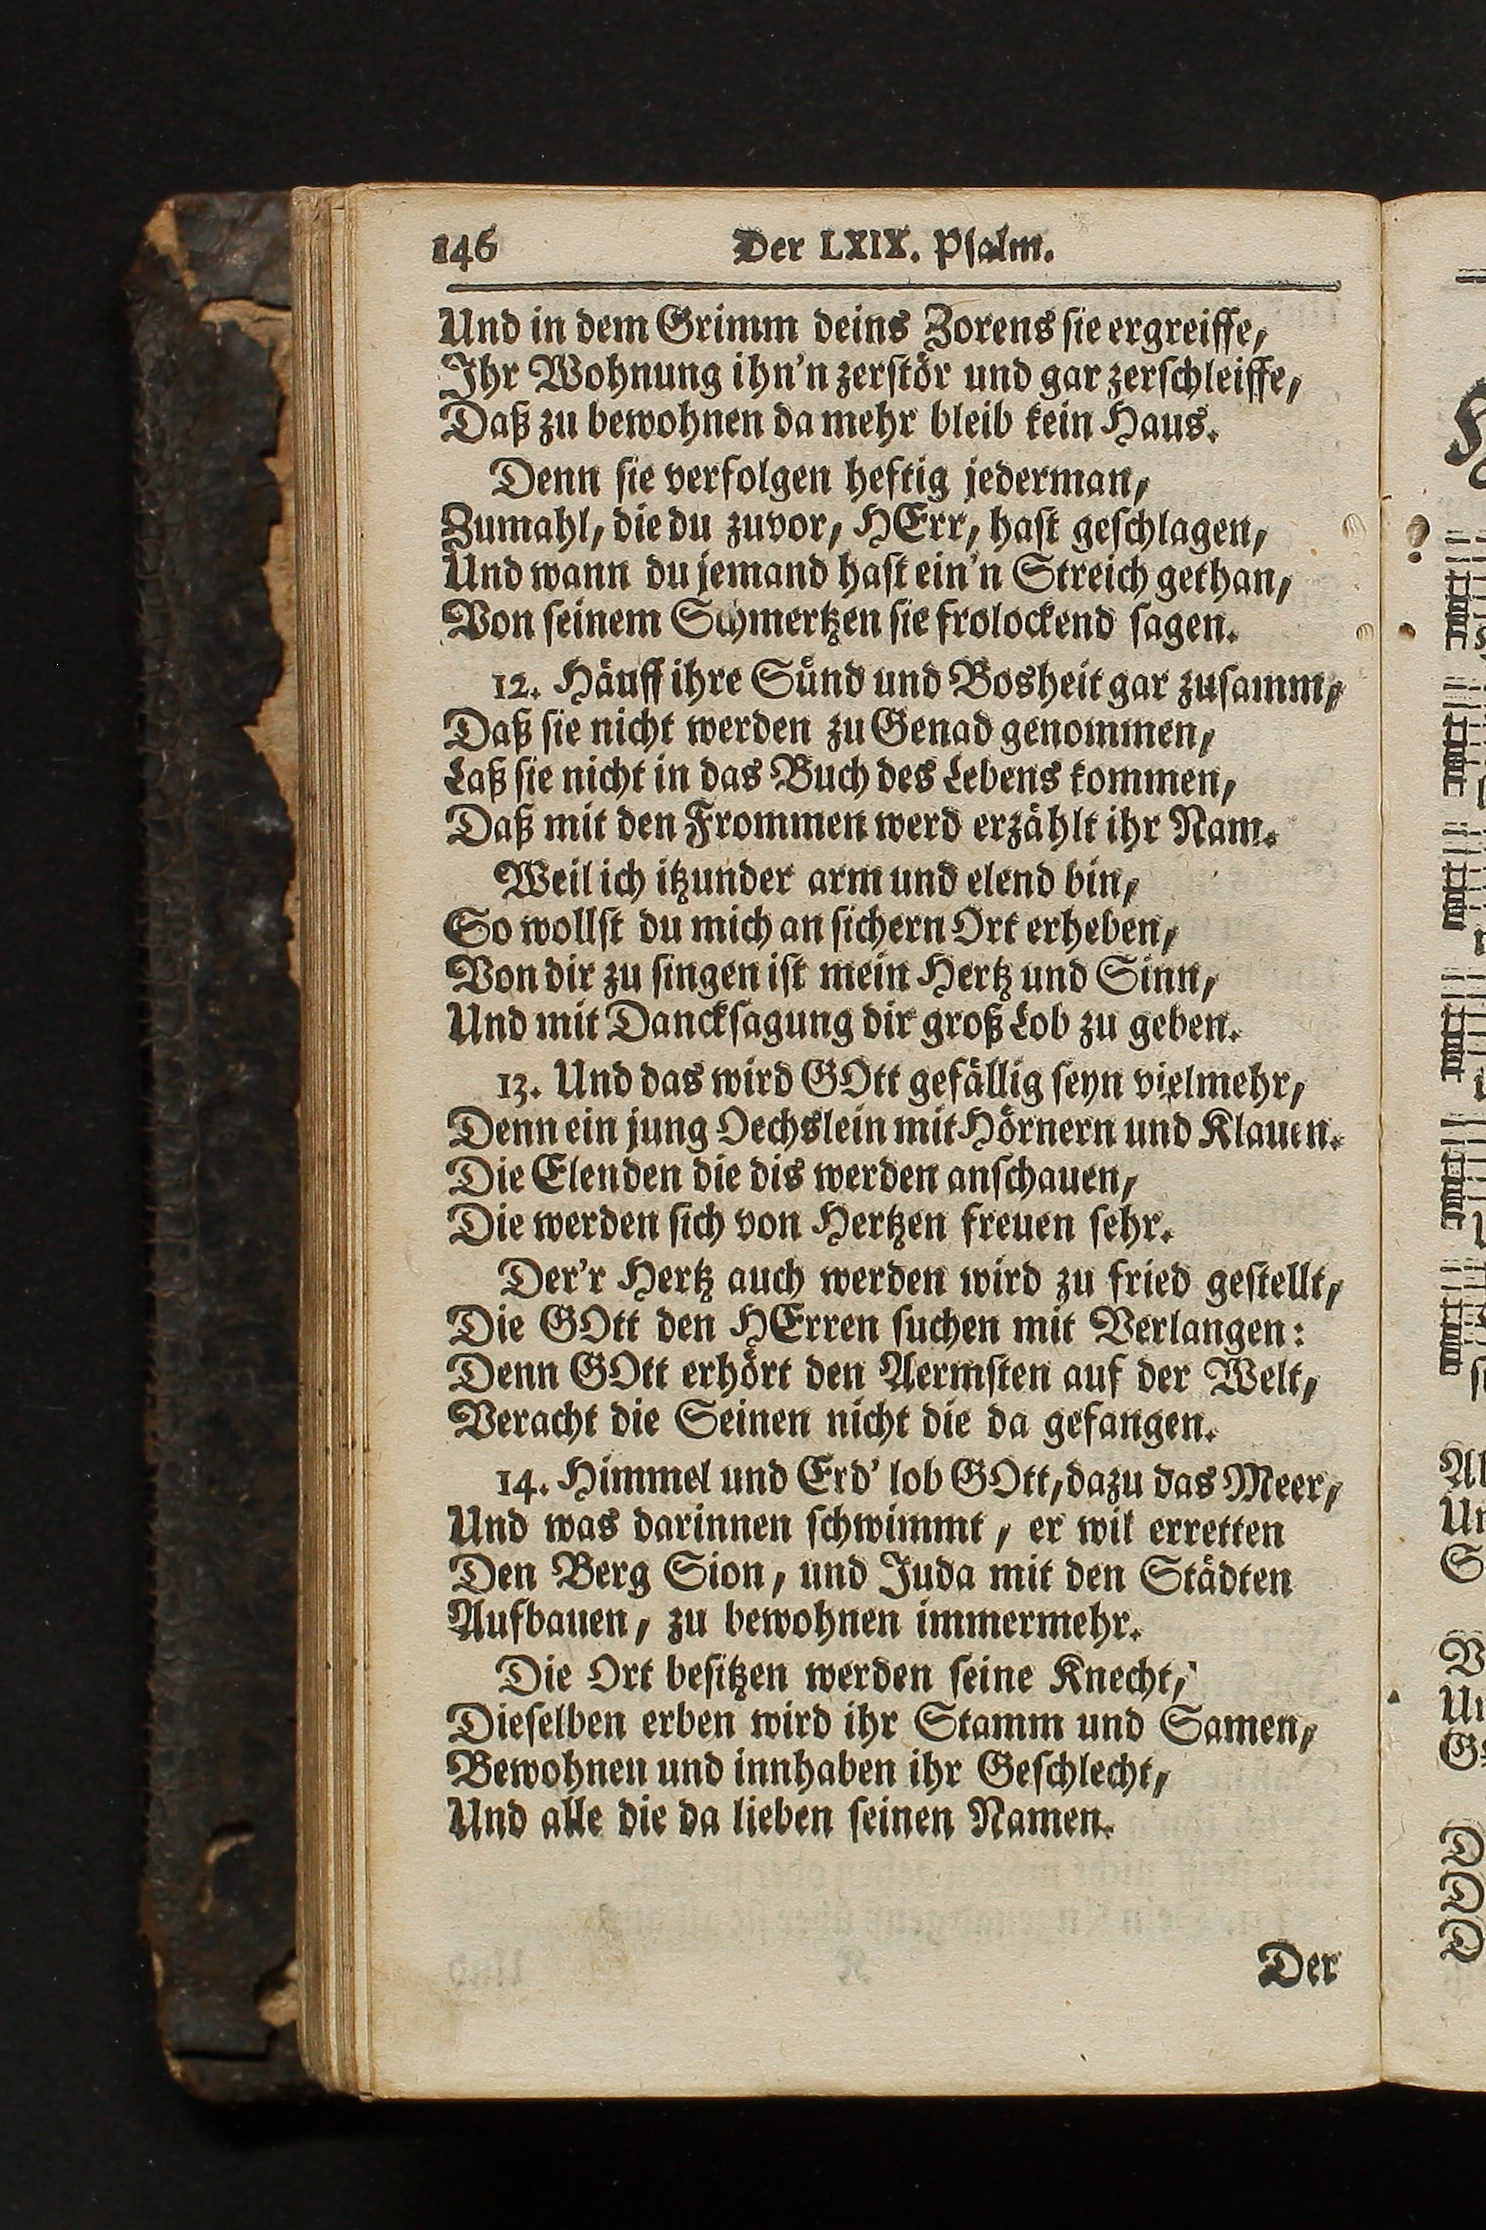 146 Der LXIX. Psalm.
Und in dem Grimm deins Zorens sie ergreiffe,
Ihr Wohnung ihn'n zerstör und gar zerschleiffe,
Daß zu bewohnen da mehr bleib kein Haus.
Denn sie verfolgen heftig jederman,
Zumahl, die du zuvor, HErr, hast geschlagen,
Und wann du jemand hast ein'n Streich gethan,
Von seinem Schmertzen sie frolockend sagen.
12. Häuff ihre Sünd und Bosheit gar zusamm,
Daß sie nicht werden zu Genad genommen,
Laß sie nicht in das Buch des Lebens kommen,
Daß mit den Frommen werd erzählt ihr Nam.
Weil ich itzunder arm und elend bin,
So wollst du mich an sichern Ort erheben,
Von dir zu singen ist mein Hertz und Sinn,
Und mit Dancksagung dir groß Lob zu geben.
13. Und das wird GOtt gefällig seyn vielmehr,
Denn ein jung Oechslein mit Hörnern und Klauen.
Die Elenden die dis werden anschauen,
Die werden sich von Hertzen freuen sehr.
Der'r Hertz auch werden wird zu fried gestellt,
Die GOtt den HErren suchen mit Verlangen:
Denn GOtt erhört den Aermsten auf der Welt,
Veracht die Seinen nicht die da gefangen.
14. Himmel und Erd' lob GOtt, dazu das Meer,
Und was darinnen schwimmt, er wil erretten
Den Berg Sion, und Juda mit den Städten
Aufbauen, zu bewohnen immermehr.
Die Ort besitzen werden seine Knecht,
Dieselben erben wird ihr Stamm und Samen,
Bewohnen und innhaben ihr Geschlecht,
Und alle die da lieben seinen Namen.
Der